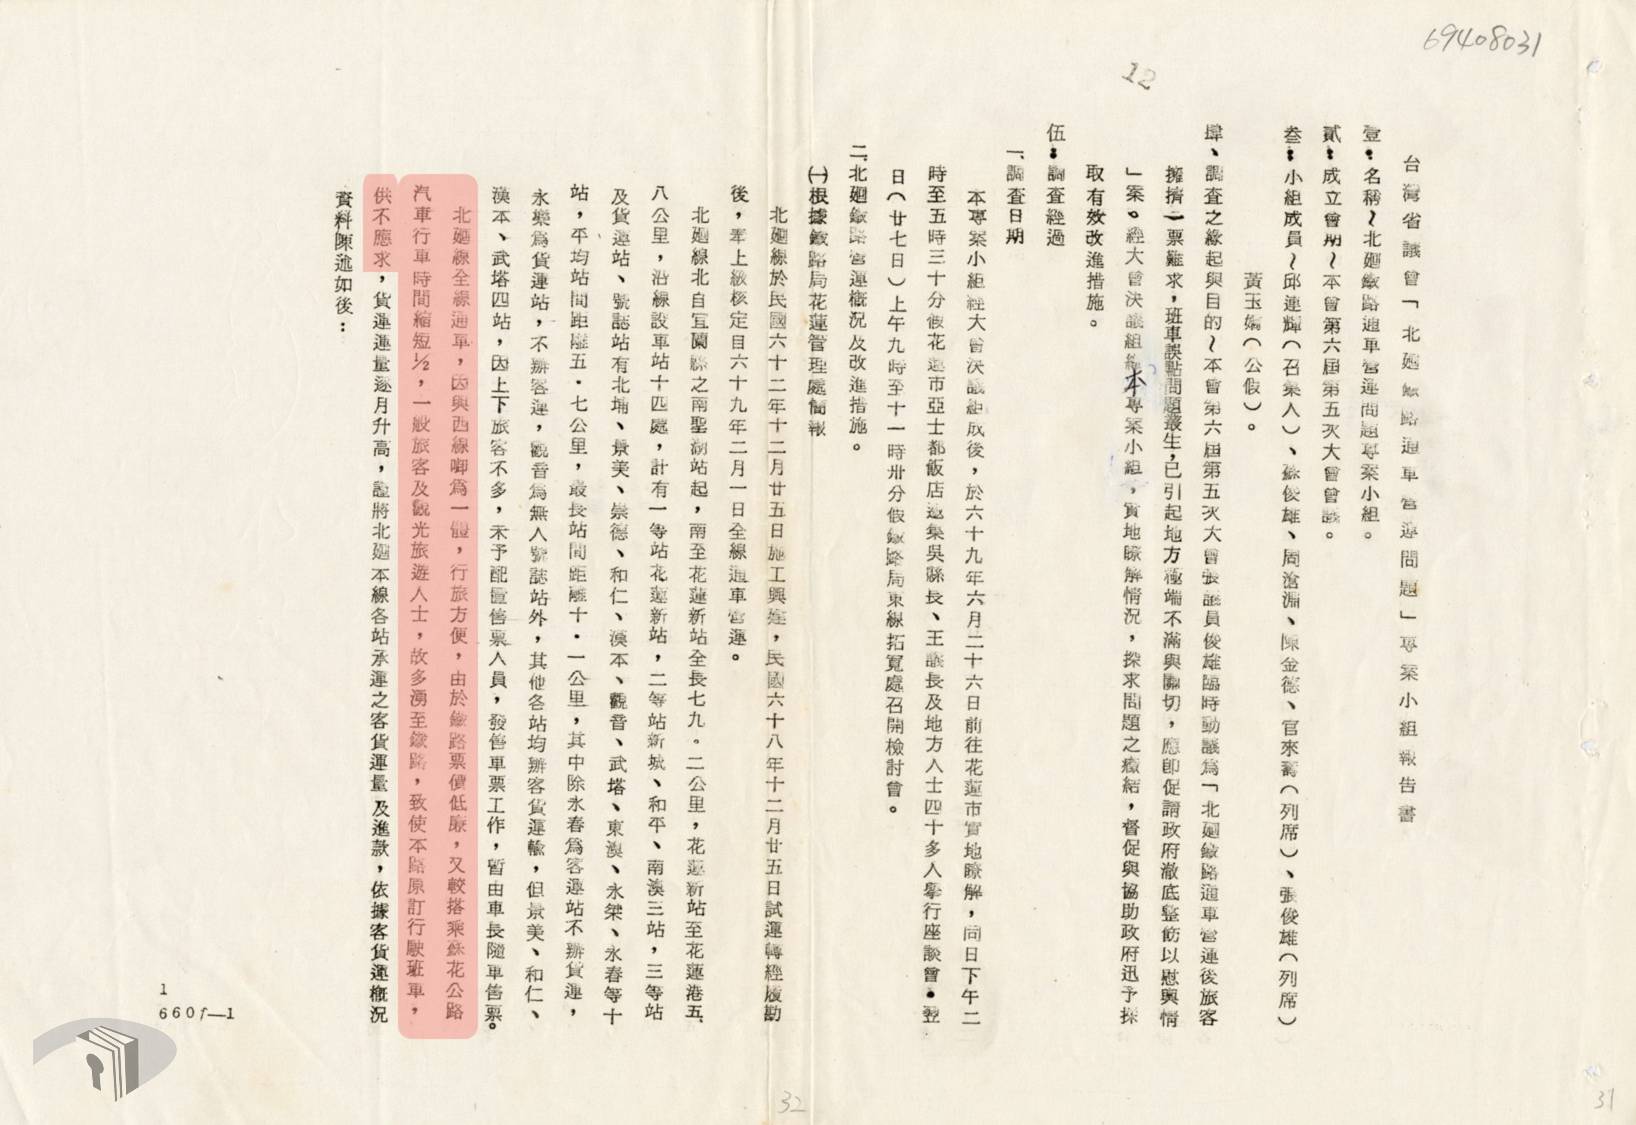 69408031
12
台灣省議會「北廻鐵路通車營運問題」專案小組報告書
壹：名稱～北廻鐵路通車營運問題專案小組。
貳：成立會期～本會第六屆第五次大會會議。
叁：小組成員～邱連輝（召集人）、蘇俊雄、周滄淵、陳金德、官來壽（列席）、張俊雄（列席）
黃玉嬌（公假）。
肆、調查之緣起與目的～本會第六屆第五次大會張議員俊雄臨時動議為「北廻鐵路通車營運後旅客
擁擠一票難求，班車誤點問題叢生，已引起地方極端不滿與關切，應即促請政府澈底整飭以慰輿情
」案。經大會決議組織本專案小組，實地瞭解情況，探求問題之癥結，督促與協助政府迅予採
取有效改進措施。
伍：調查經過
一、調查日期
本專案小組經大會決議組成後，於六十九年六月二十六日前往花蓮市實地瞭解，同日下午二
時至五時三十分假花蓮市亞士都飯店邀集吳縣長、王議長及地方人士四十多人舉行座談會。翌
日（廿七日）上午九時至十一時卅分假鐵路局東線拓寬處召開檢討會。
二、北廻鐵路營運概況及改進措施。
㈠根據鐵路局花蓮管理處簡報
北廻線於民國六十二年十二月廿五日施工興建，民國六十八年十二月廿五日試運轉經履勘
後，奉上級核定自六十九年二月一日全線通車營運。
北廻線北自宜蘭縣之南聖湖站起，南至花蓮新站全長七九。二公里，花蓮新站至花蓮港五、
八公里，沿線設車站十四處，計有一等站花蓮新站，二等站新城、和平、南澳三站，三等站
及貨運站、號誌站有北埔、景美、崇德、和仁、漢本、觀音、武塔、東澳、永樂、永春等十
站，平均站間距離五・七公里，最長站間距離十・一公里，其中除永春為客運站不辦貨運，
永樂為貨運站，不辦客運，觀音為無人號誌站外，其他各站均辦客貨運輸，但景美、和仁、
漢本、武塔四站，因上下旅客不多，未予配置售票人員，發售車票工作，暫由車長隨車售票。
北廻線全線通車，因與西線啣為一體，行旅方便，由於鐵路票價低廉，又較搭乘蘇花公路
汽車行車時間縮短½，一般旅客及觀光旅遊人士，故多湧至鐵路，致使本路原訂行駛班車，
供不應求，貨運運量逐月升高，謹將北廻本線各站承運之客貨運量及進款，依據客貨運概況
資料陳述如後：
1
660f—1
32
31